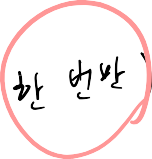 한 번만